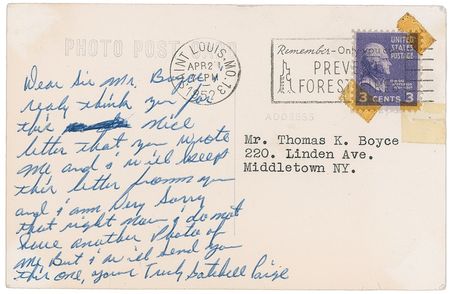 PHOTO POST
SAINT LOUIS, MO. 13
APR 2
PM
1952
Remember-Only you
PREVE
FOREST
UNITED STATES
POSTAGE
3 CENTS 3
ADDRESS
Dear Sir Mr. Boyce
realy think you for
this nice
letter that you wrote
me and i will keep
this letter fromm you
and i am very Sorry
that right now i do not
have another Photo of
me, But i will send you
this one, your Truly Satchell Paige
Mr. Thomas K. Boyce
220. Linden Ave.
Middletown NY.